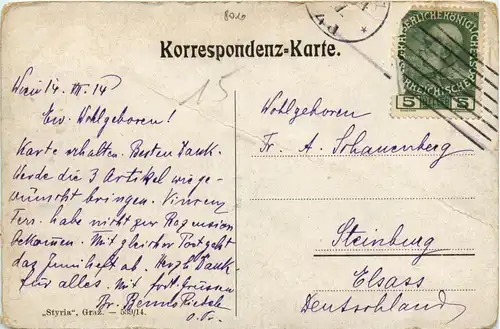 8010
Korrespondenz-Karte.
KAISERLICHE KÖNIGLICHE ÖSTERREICHISCHE
5 HELLER 5
15
Wien 14. VII. 14
Ew. Wohlgeboren!
Karte erhalten. Besten Dank.
Werde die 3 Artikel wie ge-
wünscht bringen. Vinzenz
Ferr. habe nicht zur Rezension
bekommen. Mit gleicher Post geht
das Juniheft ab. Herzl. Dank
für alles. Mit fort. Grüssen
Fr. Benno
Wohlgeboren
Fr. A. Schauenberg
Steinburg
Elsass
Deutschland
„Styria“, Graz. — 539/14.